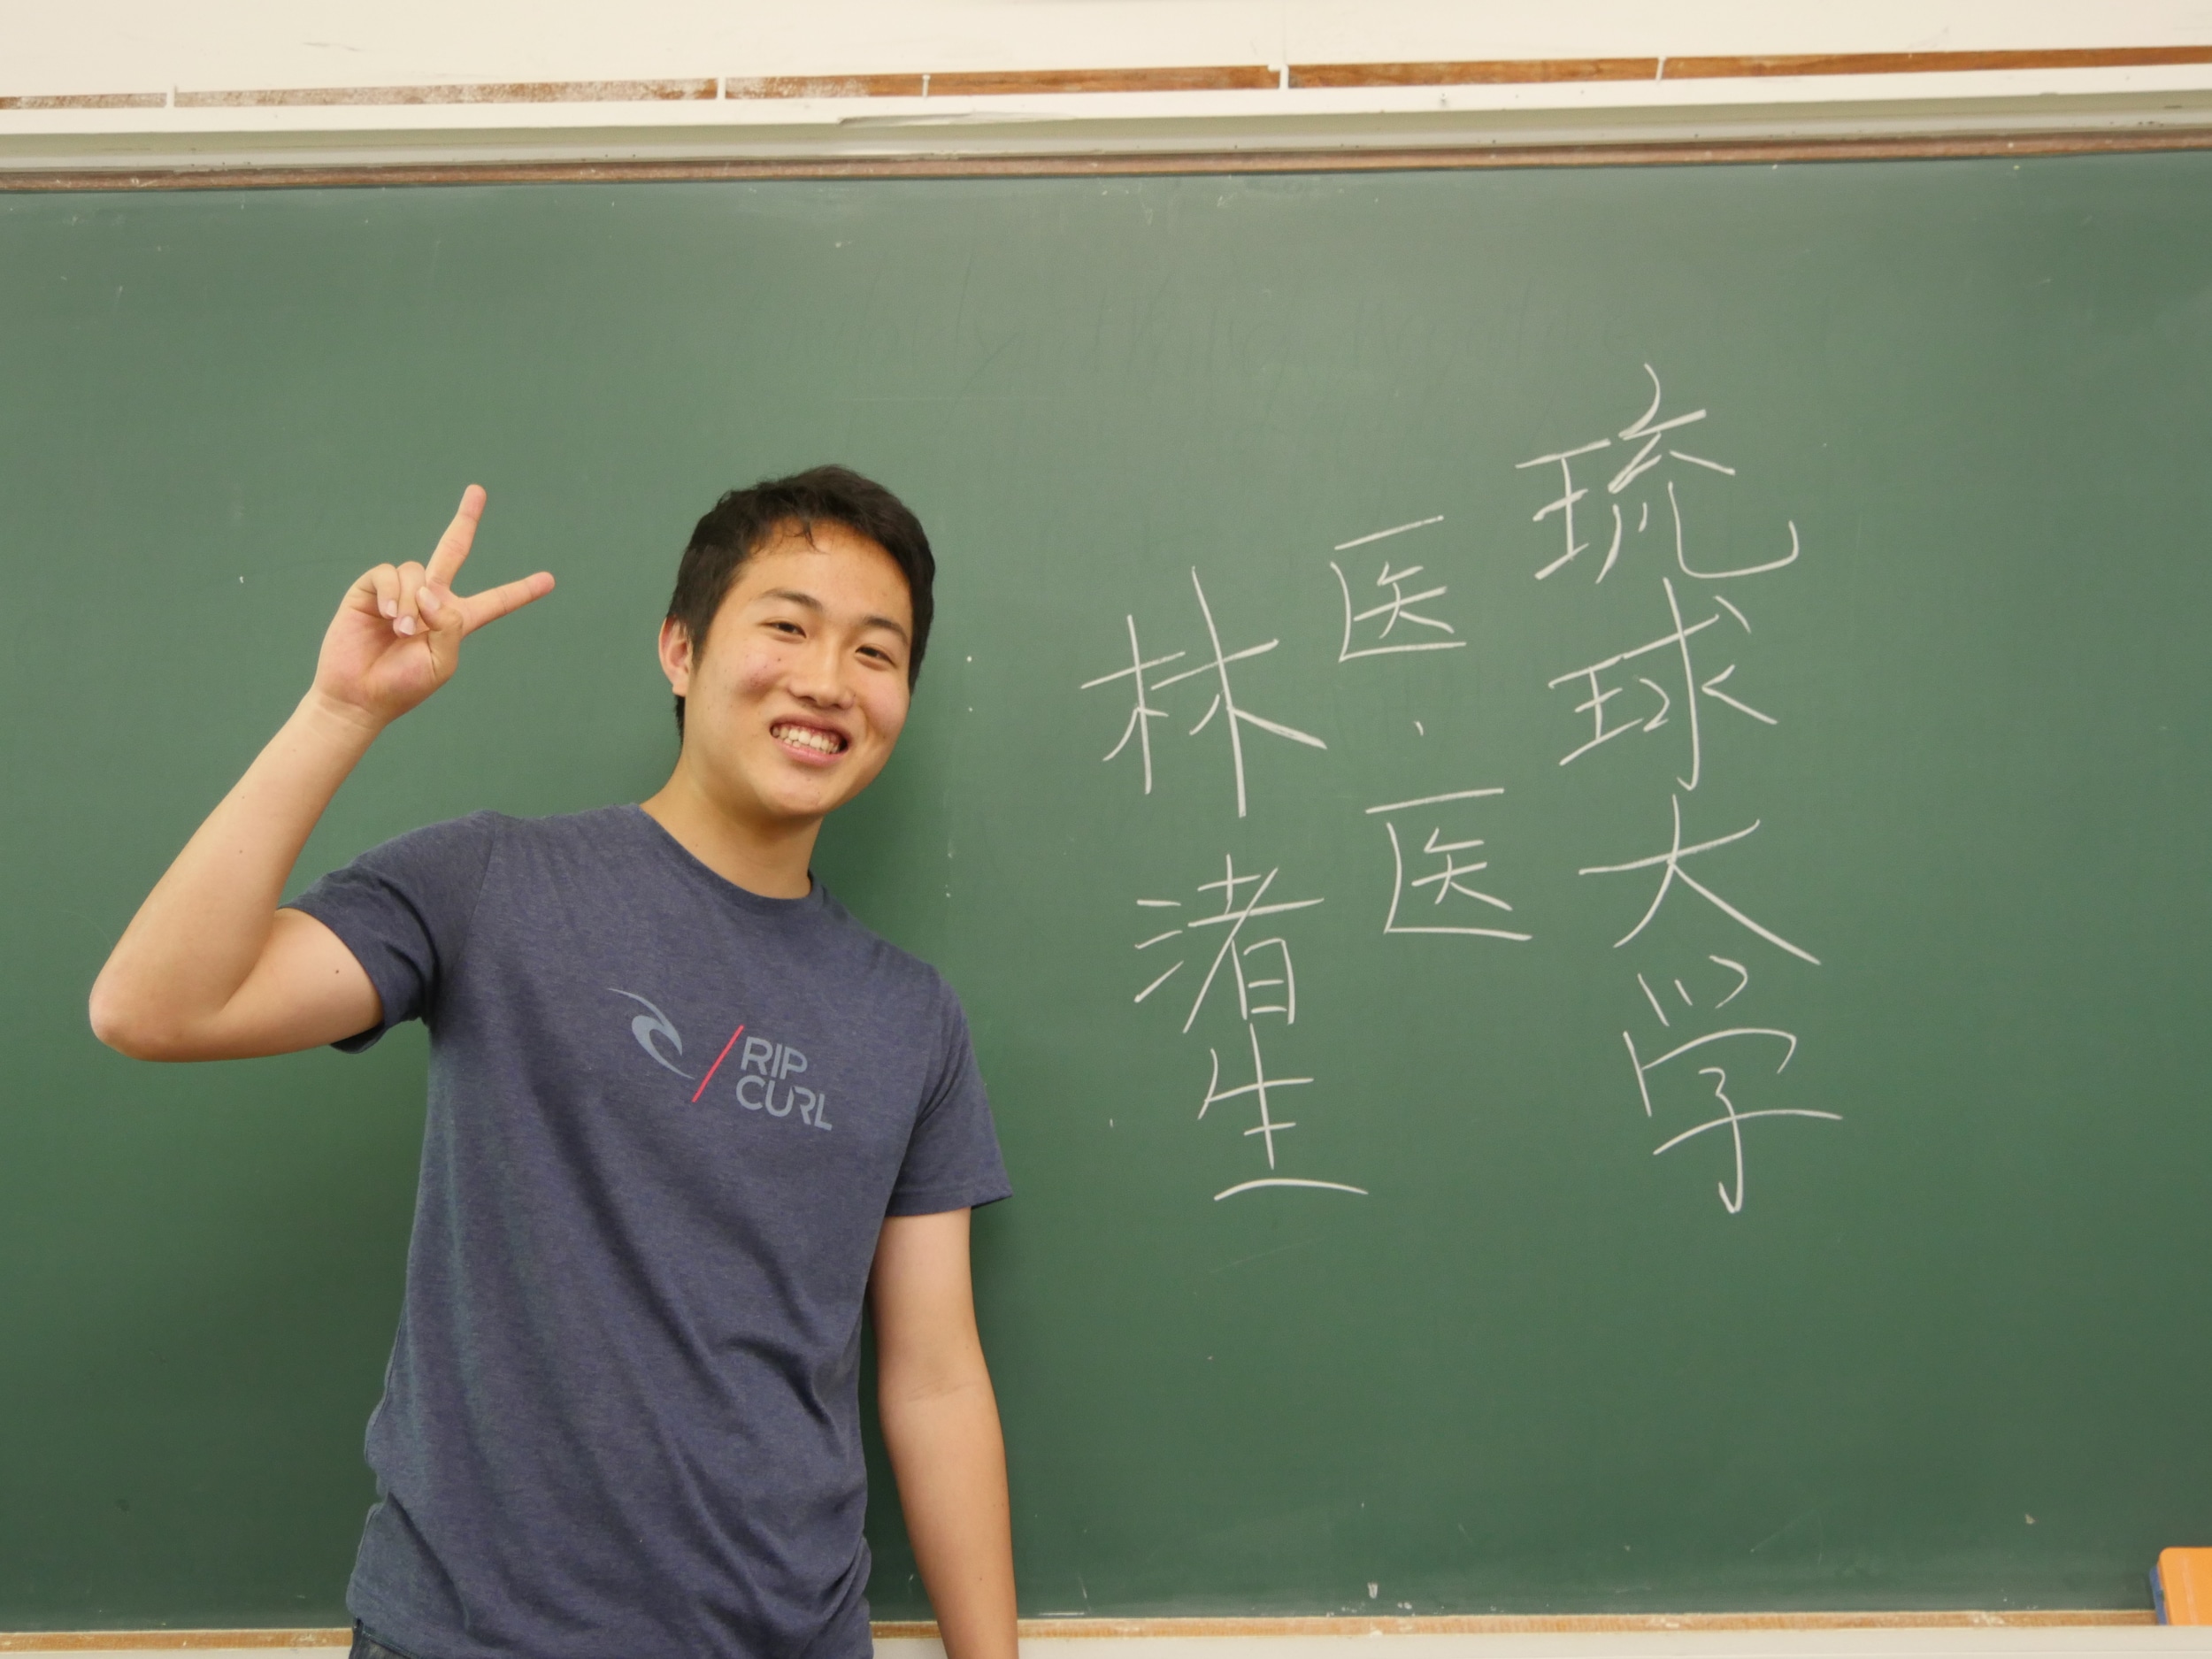 琉球大学
医・医
林渚生
RIP
CURL